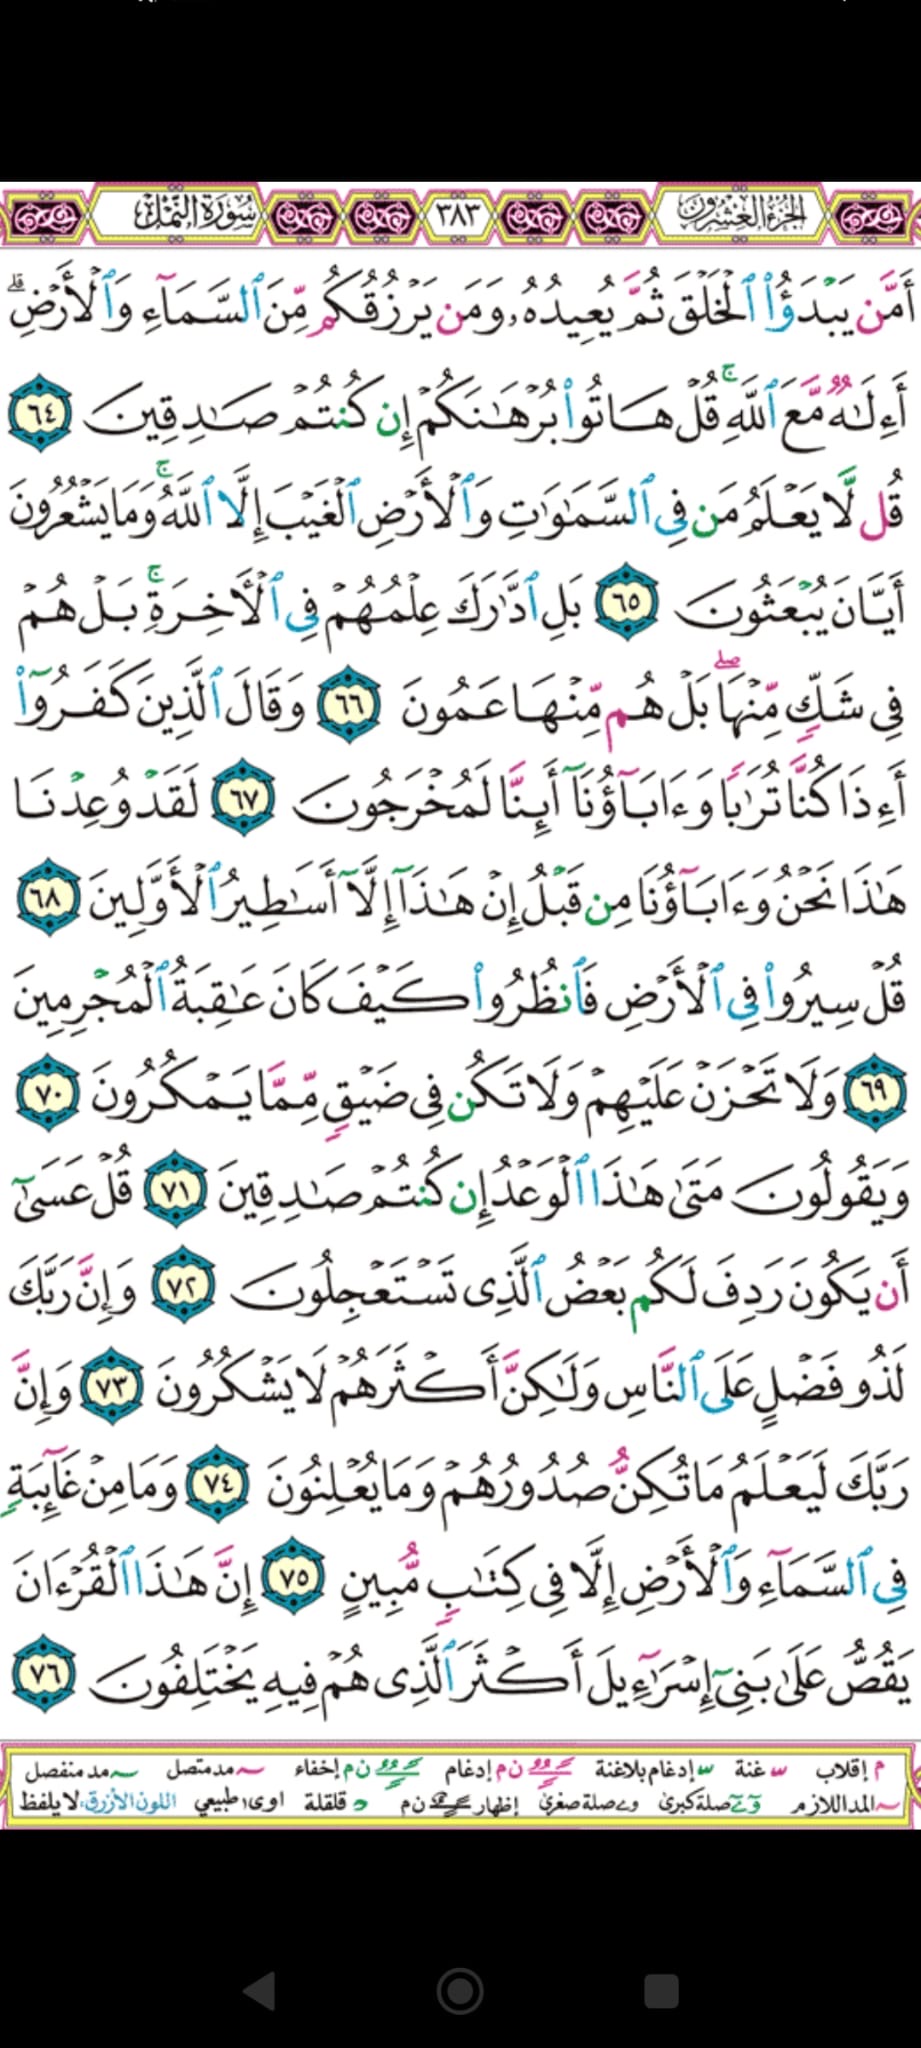 الجزء العشرون ٣٨٣ سورة النمل
أَمَّن يَبْدَؤُا۟ ٱلْخَلْقَ ثُمَّ يُعِيدُهُۥ وَمَن يَرْزُقُكُم مِّنَ ٱلسَّمَآءِ وَٱلْأَرْضِ ۗ
أَءِلَـٰهٌ مَّعَ ٱللَّهِ ۚ قُلْ هَاتُوا۟ بُرْهَـٰنَكُمْ إِن كُنتُمْ صَـٰدِقِينَ ٦٤
قُل لَّا يَعْلَمُ مَن فِى ٱلسَّمَـٰوَٰتِ وَٱلْأَرْضِ ٱلْغَيْبَ إِلَّا ٱللَّهُ ۚ وَمَا يَشْعُرُونَ
أَيَّانَ يُبْعَثُونَ ٦٥ بَلِ ٱدَّٰرَكَ عِلْمُهُمْ فِى ٱلْـَٔاخِرَةِ ۚ بَلْ هُمْ
فِى شَكٍّ مِّنْهَا ۖ بَلْ هُم مِّنْهَا عَمُونَ ٦٦ وَقَالَ ٱلَّذِينَ كَفَرُوٓا۟
أَءِذَا كُنَّا تُرَٰبًا وَءَابَآؤُنَآ أَئِنَّا لَمُخْرَجُونَ ٦٧ لَقَدْ وُعِدْنَا
هَـٰذَا نَحْنُ وَءَابَآؤُنَا مِن قَبْلُ إِنْ هَـٰذَآ إِلَّآ أَسَـٰطِيرُ ٱلْأَوَّلِينَ ٦٨
قُلْ سِيرُوا۟ فِى ٱلْأَرْضِ فَٱنظُرُوا۟ كَيْفَ كَانَ عَـٰقِبَةُ ٱلْمُجْرِمِينَ
٦٩ وَلَا تَحْزَنْ عَلَيْهِمْ وَلَا تَكُن فِى ضَيْقٍ مِّمَّا يَمْكُرُونَ ٧٠
وَيَقُولُونَ مَتَىٰ هَـٰذَا ٱلْوَعْدُ إِن كُنتُمْ صَـٰدِقِينَ ٧١ قُلْ عَسَىٰٓ
أَن يَكُونَ رَدِفَ لَكُم بَعْضُ ٱلَّذِى تَسْتَعْجِلُونَ ٧٢ وَإِنَّ رَبَّكَ
لَذُو فَضْلٍ عَلَى ٱلنَّاسِ وَلَـٰكِنَّ أَكْثَرَهُمْ لَا يَشْكُرُونَ ٧٣ وَإِنَّ
رَبَّكَ لَيَعْلَمُ مَا تُكِنُّ صُدُورُهُمْ وَمَا يُعْلِنُونَ ٧٤ وَمَا مِنْ غَآئِبَةٍ
فِى ٱلسَّمَآءِ وَٱلْأَرْضِ إِلَّا فِى كِتَـٰبٍ مُّبِينٍ ٧٥ إِنَّ هَـٰذَا ٱلْقُرْءَانَ
يَقُصُّ عَلَىٰ بَنِىٓ إِسْرَٰٓءِيلَ أَكْثَرَ ٱلَّذِى هُمْ فِيهِ يَخْتَلِفُونَ ٧٦
م إقلاب غنة إدغام بلاغنة ن م إدغام ن م إخفاء مد متصل مد منفصل
المد اللازم صلة كبرى صلة صغرى إظهار ن م قلقلة ا و ى طبيعي اللون الأزرق، لا يلفظ